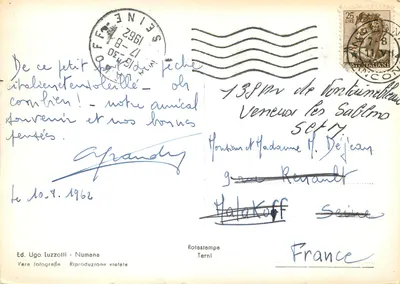 De ce petit port de pêche
italien ensoleillé - oh
combien! - notre amical
souvenir et nos bonnes
pensées.
Le 10.8.1962
SEINE
17-8
1962
139 rue de Fontainebleau
Veneux les Sablons
S et M
Monsieur et Madame M. Déjean
9 rue Renault
Malakoff Seine
France
Ed. Ugo Luzzotti - Numana
Vera fotografia Riproduzione vietata
Rotastampa
Terni